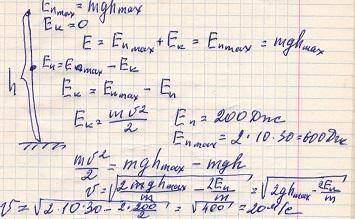 Eп max = mghmax
Eк = 0
E = Eп max + Eк = Eп max = mghmax
Eп = Eп max − Eк
Eк = Eп max − Eп
h
Eк = mv²/2
Eп = 200 Дж
Eп max = 2·10·30 = 600 Дж
mv²/2 = mghmax − mgh
v = √(2mghmax/m − 2Eп/m) = √(2ghmax − 2Eп/m)
v = √(2·10·30 − 2·200/2) = √400 = 20 м/с